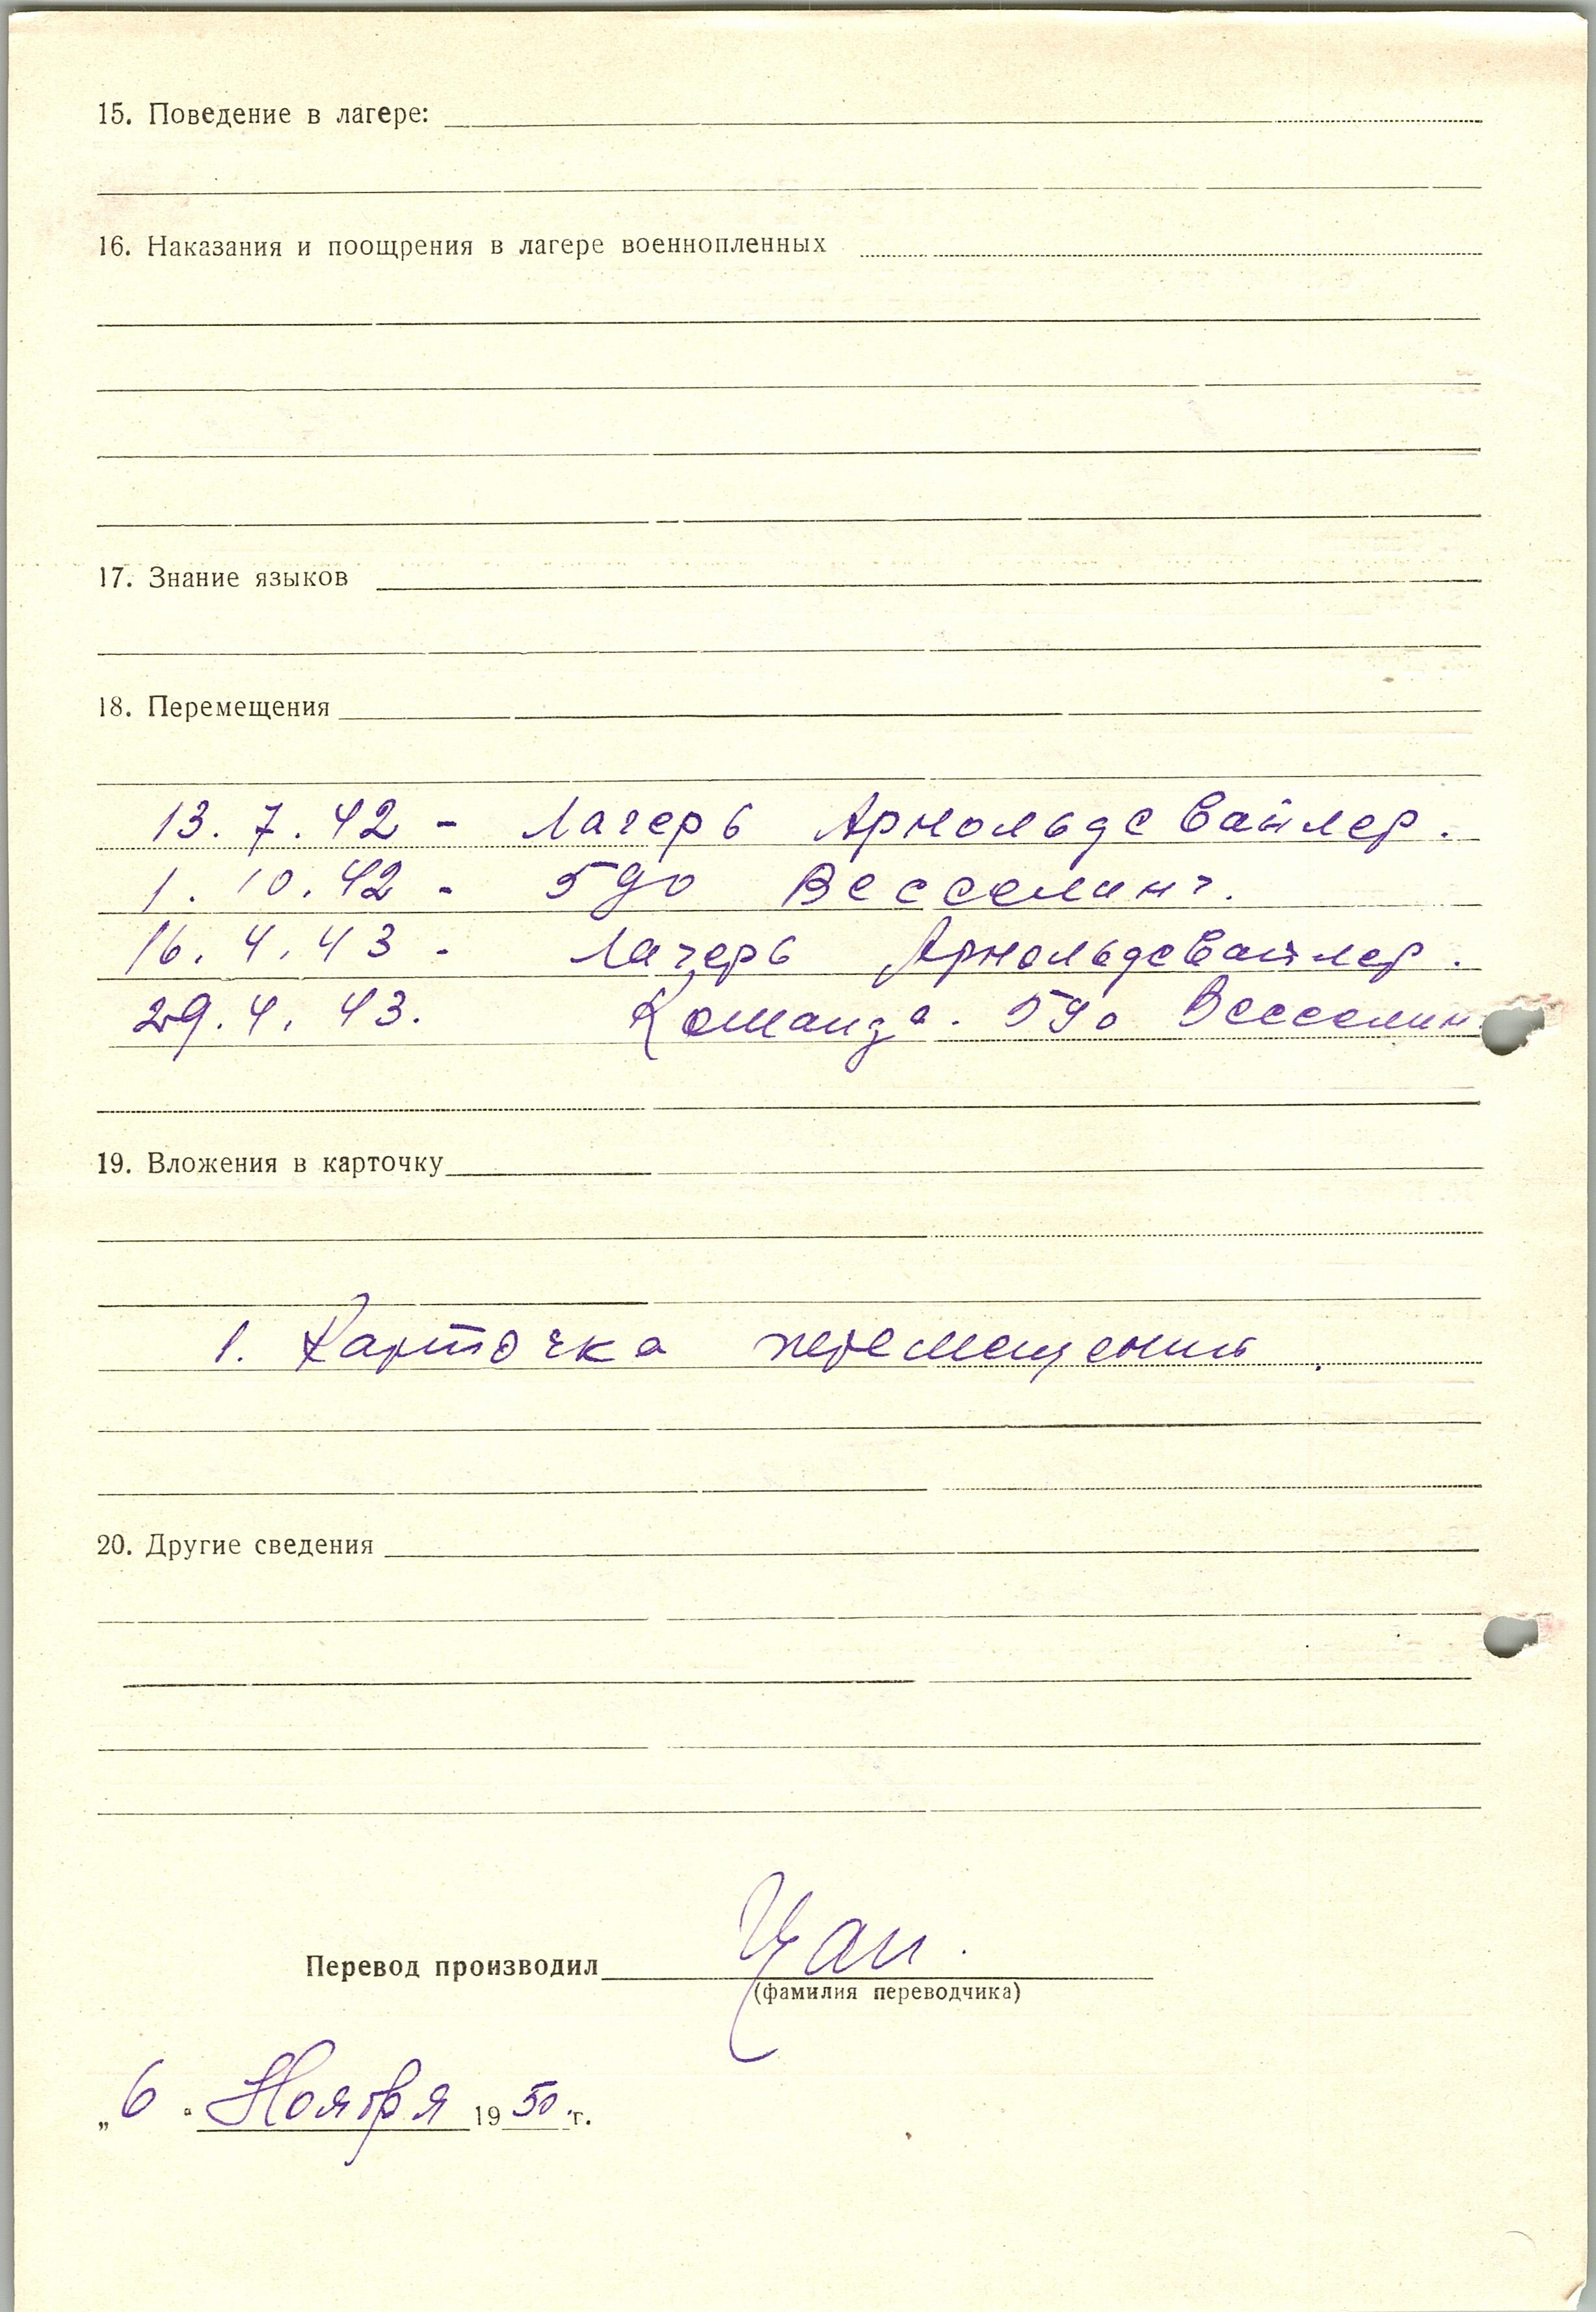 15. Поведение в лагере:
16. Наказания и поощрения в лагере военнопленных
17. Знание языков
18. Перемещения
13.7.42 - Лагерь Арнольдсвайлер.
1.10.42 - 590 Весселинг.
16.4.43 - Лагерь Арнольдсвайлер.
29.4.43. Команда. 590 Весселин
19. Вложения в карточку
1. Карточка перемещения.
20. Другие сведения
Перевод производил Цан.
(фамилия переводчика)
„6" Ноября 1950 г.